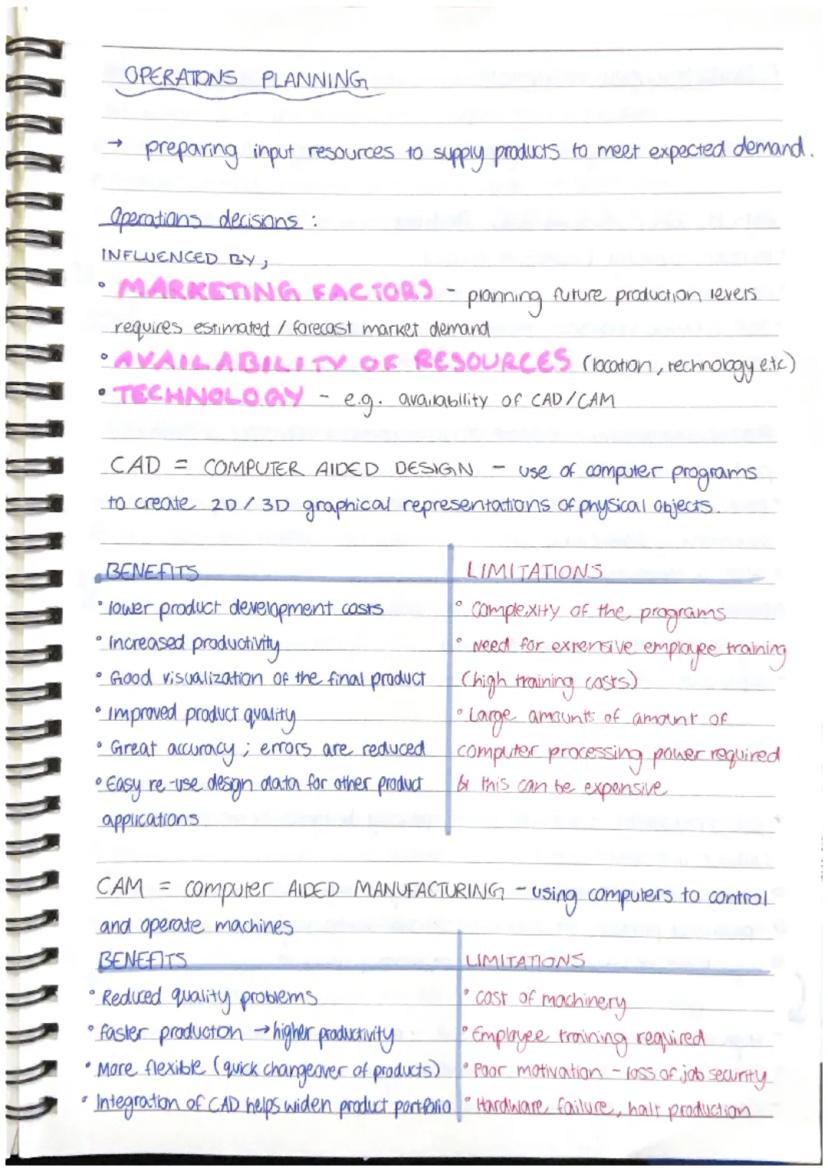 OPERATIONS PLANNING
→ preparing input resources to supply products to meet expected demand.
Operations decisions :
INFLUENCED BY,
• MARKETING FACTORS - planning future production levels
requires estimated / forecast market demand
• AVAILABILITY OF RESOURCES (location, technology etc)
• TECHNOLOGY - e.g. availability of CAD/CAM
CAD = COMPUTER AIDED DESIGN - use of computer programs
to create 2D / 3D graphical representations of physical objects.
BENEFITS
• lower product development costs
• Increased productivity
• Good visualization of the final product
• Improved product quality
• Great accuracy ; errors are reduced
• Easy re-use design data for other product
applications
LIMITATIONS
• Complexity of the programs
• Need for extensive employee training
(high training costs)
• Large amounts of amount of
computer processing power required
& this can be expensive
CAM = computer AIDED MANUFACTURING - using computers to control
and operate machines
BENEFITS
• Reduced quality problems
• faster production → higher productivity
• More flexible (quick changeover of products)
• Integration of CAD helps widen product portfolio
LIMITATIONS
• Cost of machinery
• Employee training required
• Poor motivation - loss of job security
• Hardware, failure, halt production